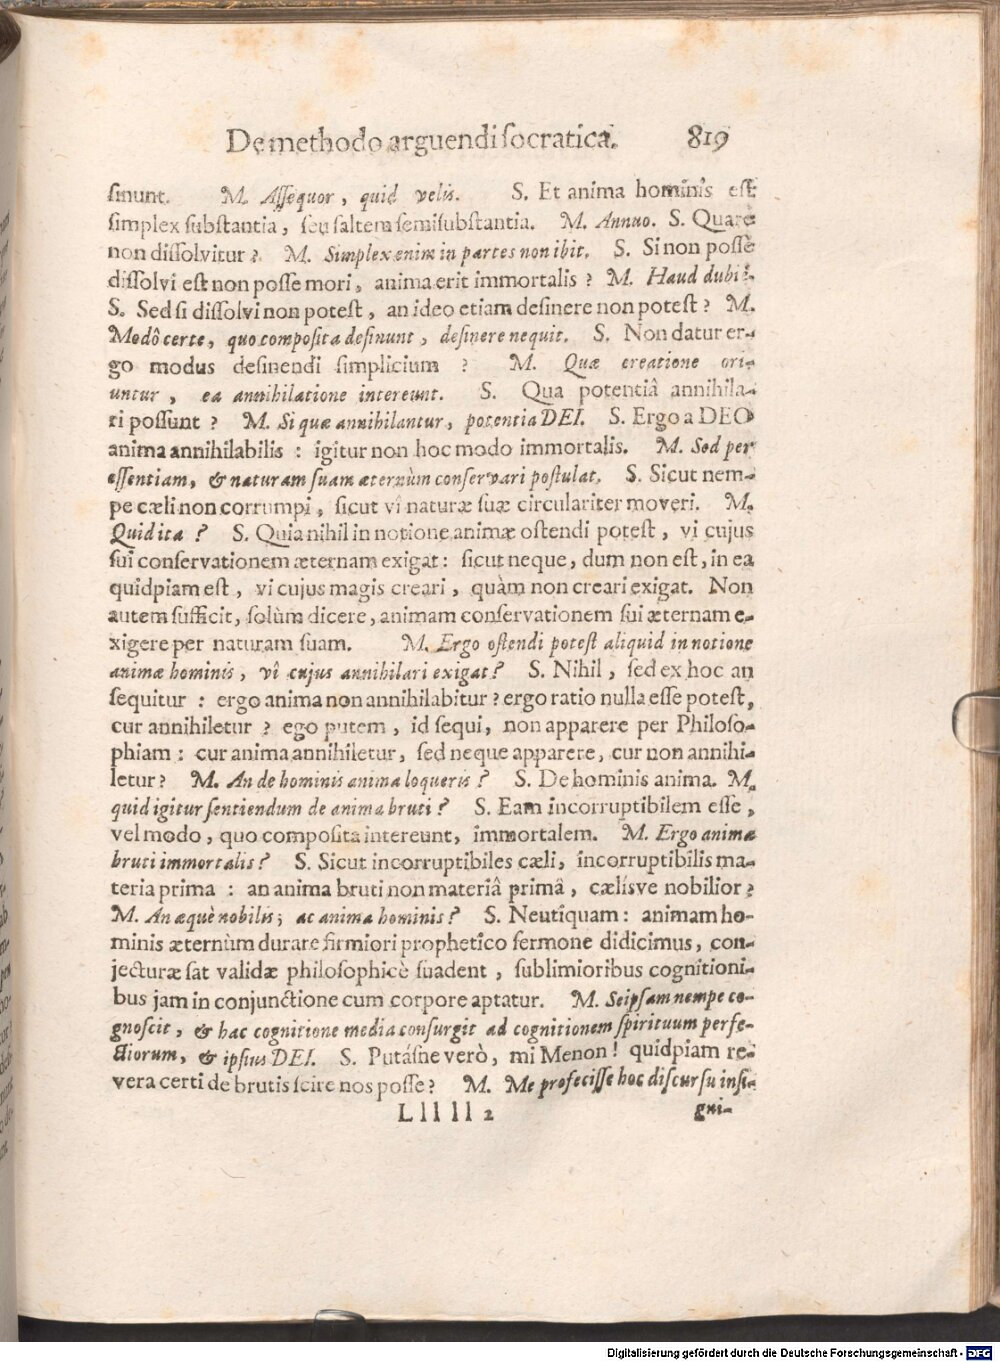 De methodo arguendi socratica. 819
sinunt. M. Assequor, quid velis. S. Et anima hominis est
simplex substantia, seu saltem semisubstantia. M. Annuo. S. Quare
non dissolvitur? M. Simplex enim in partes non ibit. S. Si non posse
dissolvi est non posse mori, anima erit immortalis? M. Haud dubiè.
S. Sed si dissolvi non potest, an ideo etiam desinere non potest? M.
Modô certe, quo composita desinunt, desinere nequit. S. Non datur er-
go modus desinendi simplicium? M. Quæ creatione ori-
untur, ea annihilatione intereunt. S. Qua potentiâ annihila-
ri possunt? M. Si quæ annihilantur, potentia DEI. S. Ergo a DEO
anima annihilabilis: igitur non hoc modo immortalis. M. Sed per
essentiam, & naturam suam æternùm conservari postulat. S. Sicut nem-
pe cæli non corrumpi, sicut vi naturæ suæ circulariter moveri. M.
Quid ita? S. Quia nihil in notione animæ ostendi potest, vi cujus
sui conservationem æternam exigat: sicut neque, dum non est, in ea
quidpiam est, vi cujus magis creari, quàm non creari exigat. Non
autem sufficit, solùm dicere, animam conservationem sui æternam e-
xigere per naturam suam. M. Ergo ostendi potest aliquid in notione
animæ hominis, vî cujus annihilari exigat? S. Nihil, sed ex hoc an
sequitur: ergo anima non annihilabitur? ergo ratio nulla esse potest,
cur annihiletur? ego putem, id sequi, non apparere per Philoso-
phiam: cur anima annihiletur, sed neque apparere, cur non annihi-
letur? M. An de hominis anima loqueris? S. De hominis anima. M.
quid igitur sentiendum de anima bruti? S. Eam incorruptibilem esse,
vel modo, quo composita intereunt, immortalem. M. Ergo anima
bruti immortalis? S. Sicut incorruptibiles cæli, incorruptibilis ma-
teria prima: an anima bruti non materiâ primâ, cælísve nobilior?
M. An æquè nobilis; ac anima hominis? S. Neutiquam: animam ho-
minis æternùm durare firmiori prophetico sermone didicimus, con-
jecturæ sat validæ philosophicè suadent, sublimioribus cognitioni-
bus jam in conjunctione cum corpore aptatur. M. Seipsam nempe co-
gnoscit, & hac cognitione media consurgit ad cognitionem spirituum perfe-
ctiorum, & ipsius DEI. S. Putásne verò, mi Menon! quidpiam re-
vera certi de brutis scire nos posse? M. Me profecisse hoc discursu insi-
Lll ll 2 gni-
Digitalisierung gefördert durch die Deutsche Forschungsgemeinschaft - DFG